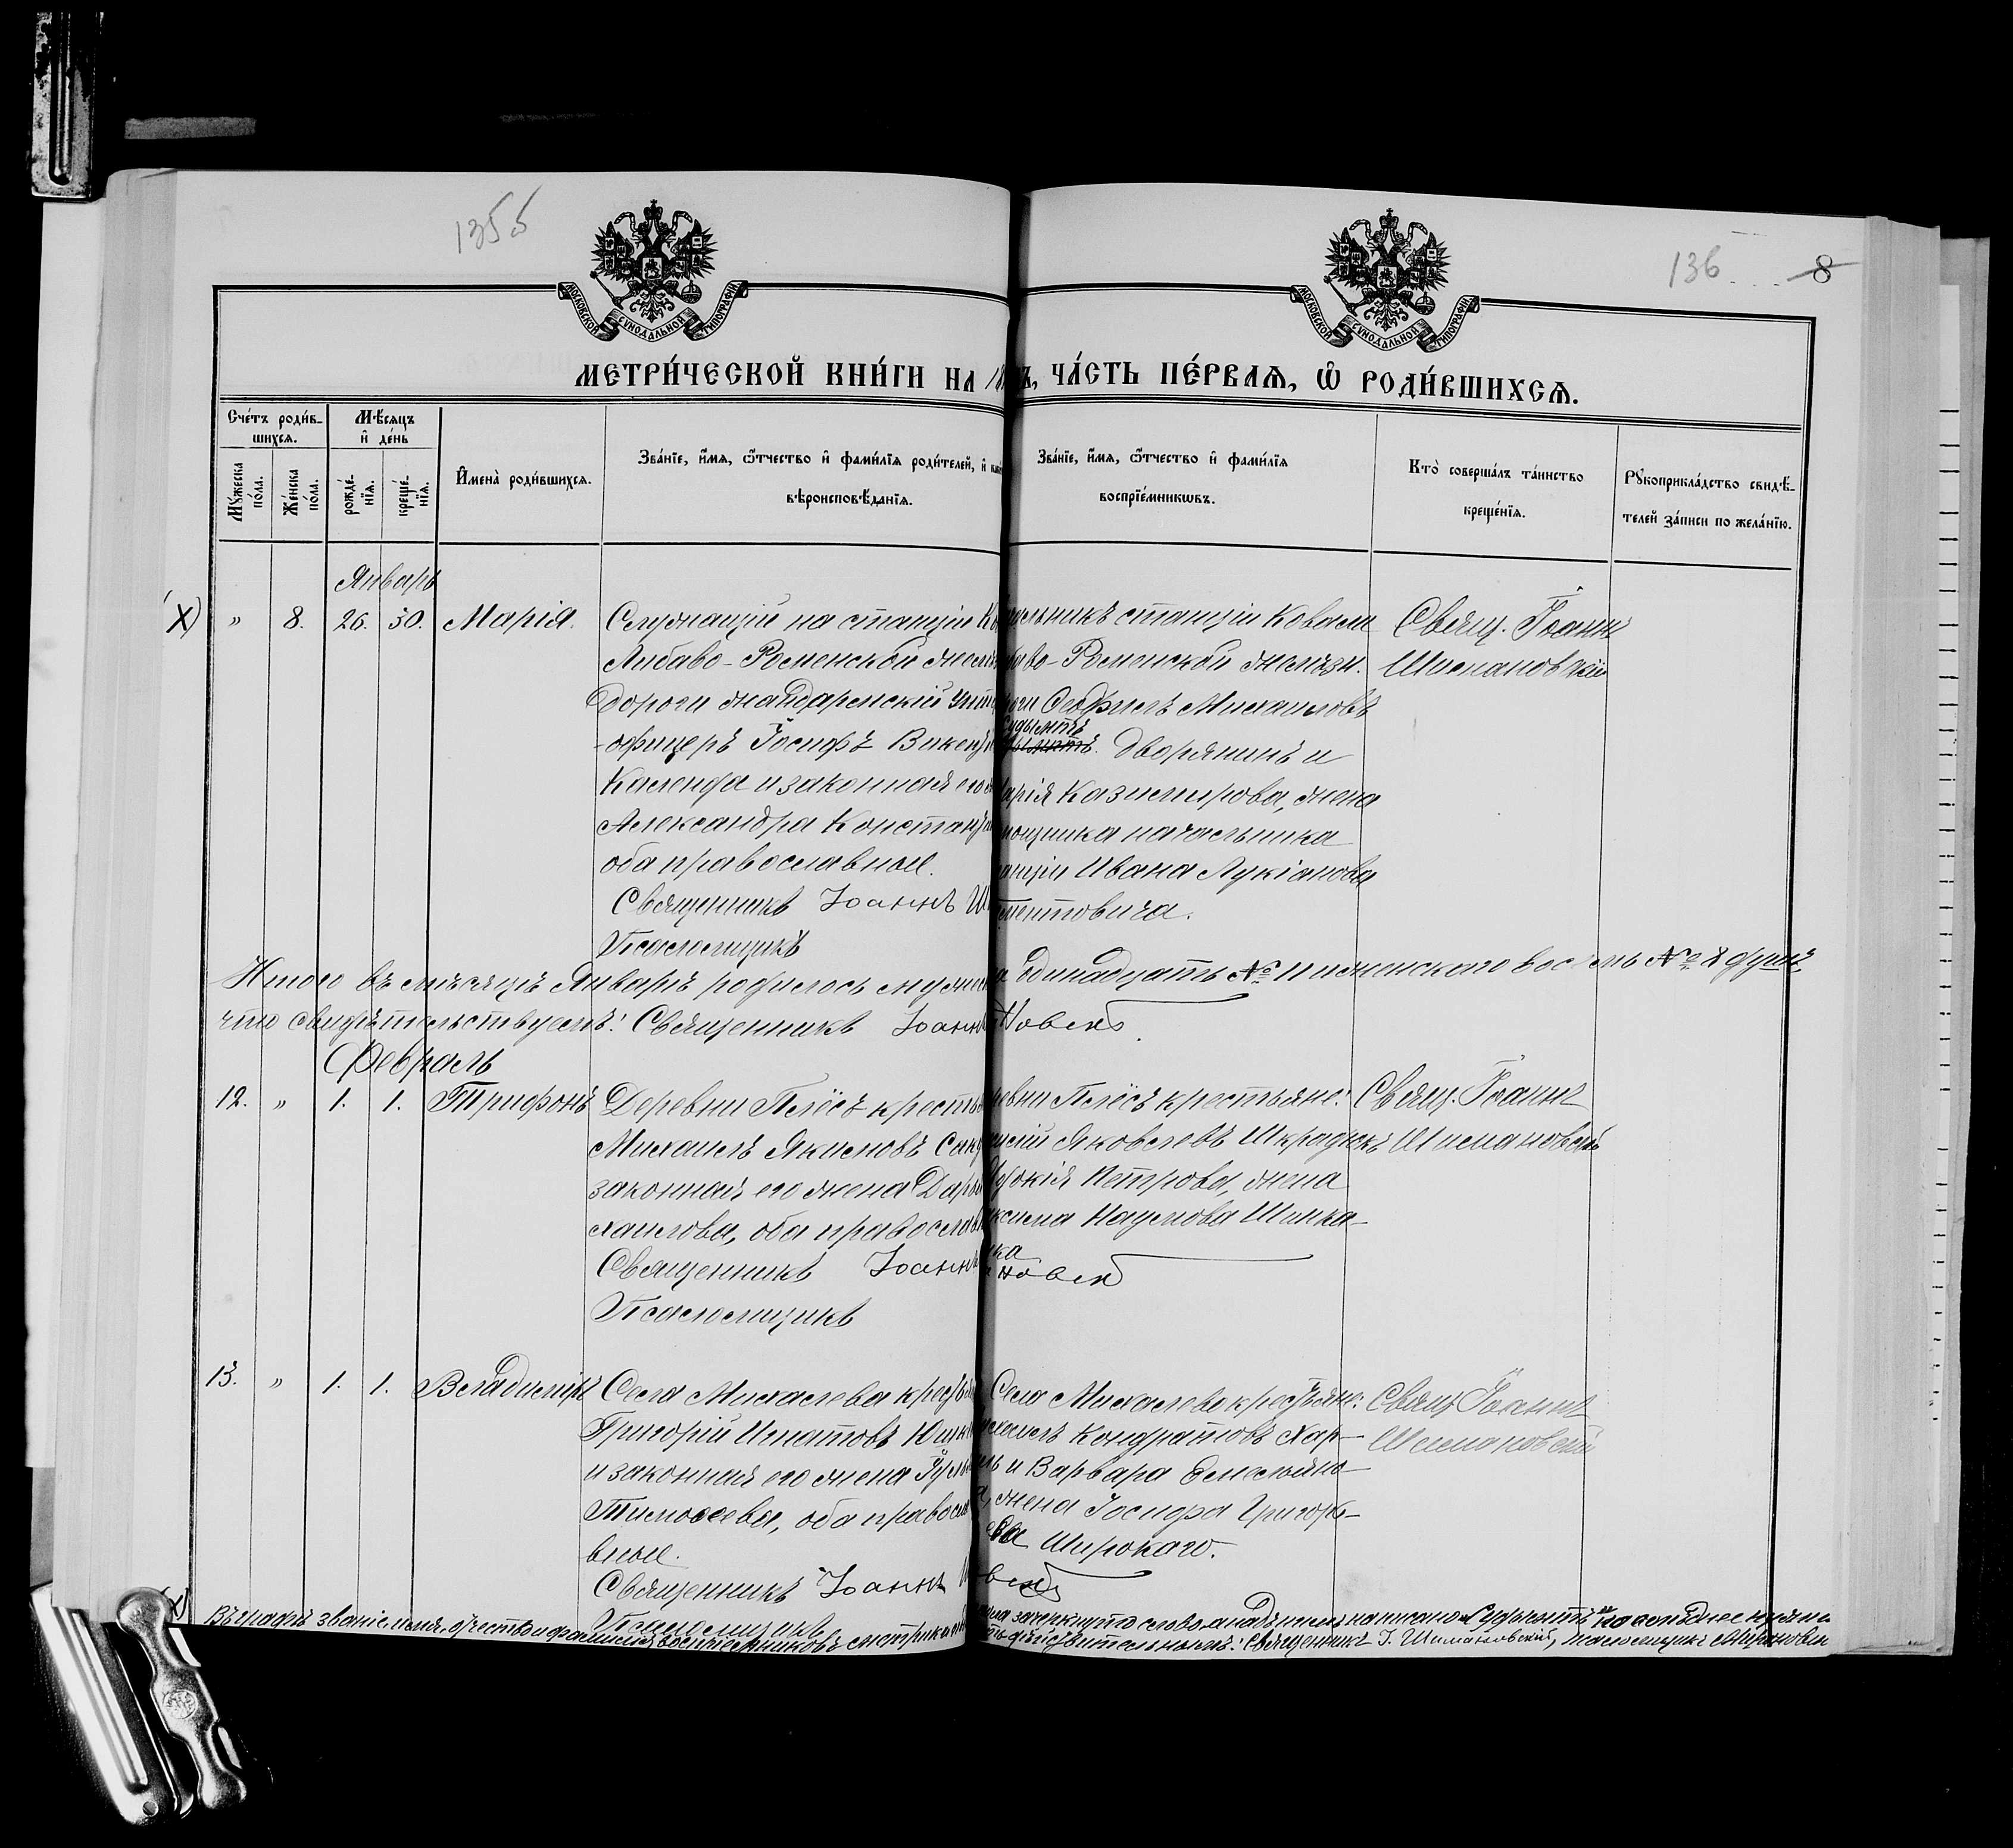 135б
136
8
МОСКОВСКОЙ СѴНОДАЛЬНОЙ ТИПОГРАФІИ
МОСКОВСКОЙ СѴНОДАЛЬНОЙ ТИПОГРАФІИ
МЕТРИ́ЧЕСКОЙ КНИ́ГИ НА 18
Ъ, ЧА́СТЬ ПЕ́РВАѦ, Ѽ РОДИ́ВШИХСѦ.
Сче́тъ роди́в-
шихсѧ.
Мꙋжеска по́ла.
Же́нска по́ла.
Мѣ́сѧцъ
и҆ де́нь
рожде́-
нїѧ.
креще́-
нїѧ.
И҆мена̀ роди́вшихсѧ.
Зва́нїе, и҆́мѧ, ѻ҆́тчество и҆ фами́лїѧ роди́телей, и҆
вѣроисповѣ́данїѧ.
Зва́нїе, и҆́мѧ, ѻ҆́тчество и҆ фами́лїѧ
воспрїе́мникѡвъ.
Кто̀ соверша́лъ та́инство
креще́нїѧ.
Рꙋкоприкла́дство свидѣ́-
телей за́писи по жела́нїю.
Январь
(X) „ 8. 26. 30. Марія.
Служащій на станціи Ко
Либаво-Роменской желѣз
дороги жандармскій унт
-офицеръ Іосифъ Викент
Календа и законная его ж
Александра Констант
оба православные.
Священникъ Іоаннъ Ш
Псаломщикъ
альникъ станціи Ковали
баво-Роменской желѣзн.
роги Михаиловъ
дворянинъ и
арія Казимирова, жена
мощника начальника
анціи Ивана Лукіанова
ментовича.
Свящ. Іоаннъ
Шимановскій
Итого въ мѣсяцѣ Январѣ родилось мужеск
а одинадцать № 11 и женскаго восемь № 8 душъ,
что свидѣтельствуемъ: Священникъ Іоаннъ
новскій
Февраль
12. „ 1. 1. Трифонъ
Деревни Плёсъ кресть
Михаилъ Якимовъ
законная его жена Дарья
хаилова, оба православ
Священникъ Іоаннъ
Псаломщикъ
ревни Плёсъ крестьяне:
Яковлевъ Шкрадюкъ
докія Петрова, жена
ксима Наумова Шинка-
ка
новскій
Свящ. Іоаннъ
Шимановскій
13. „ 1. 1. Владиміръ
Села Михалева крестья
Григорій Игнатовъ Юшк
и законная его жена Іуль
Тимоѳеева, оба правосла
вные.
Священникъ Іоаннъ
Псаломщикъ
Села Михалева крестьяне:
ихаилъ Кондратовъ Хар-
и Варвара Емельяно-
а, жена Іосифа Григорь-
ева Широкаго.
вскій
Свящ. Іоаннъ
Шимановскій
X) Въ графѣ званіе, имя, отчество и фамилія воспріемниковъ
зачеркнуто слово, а надъ нимъ написано
дѣйствительнымъ: Священникъ І. Шимановскій, псаломщикъ